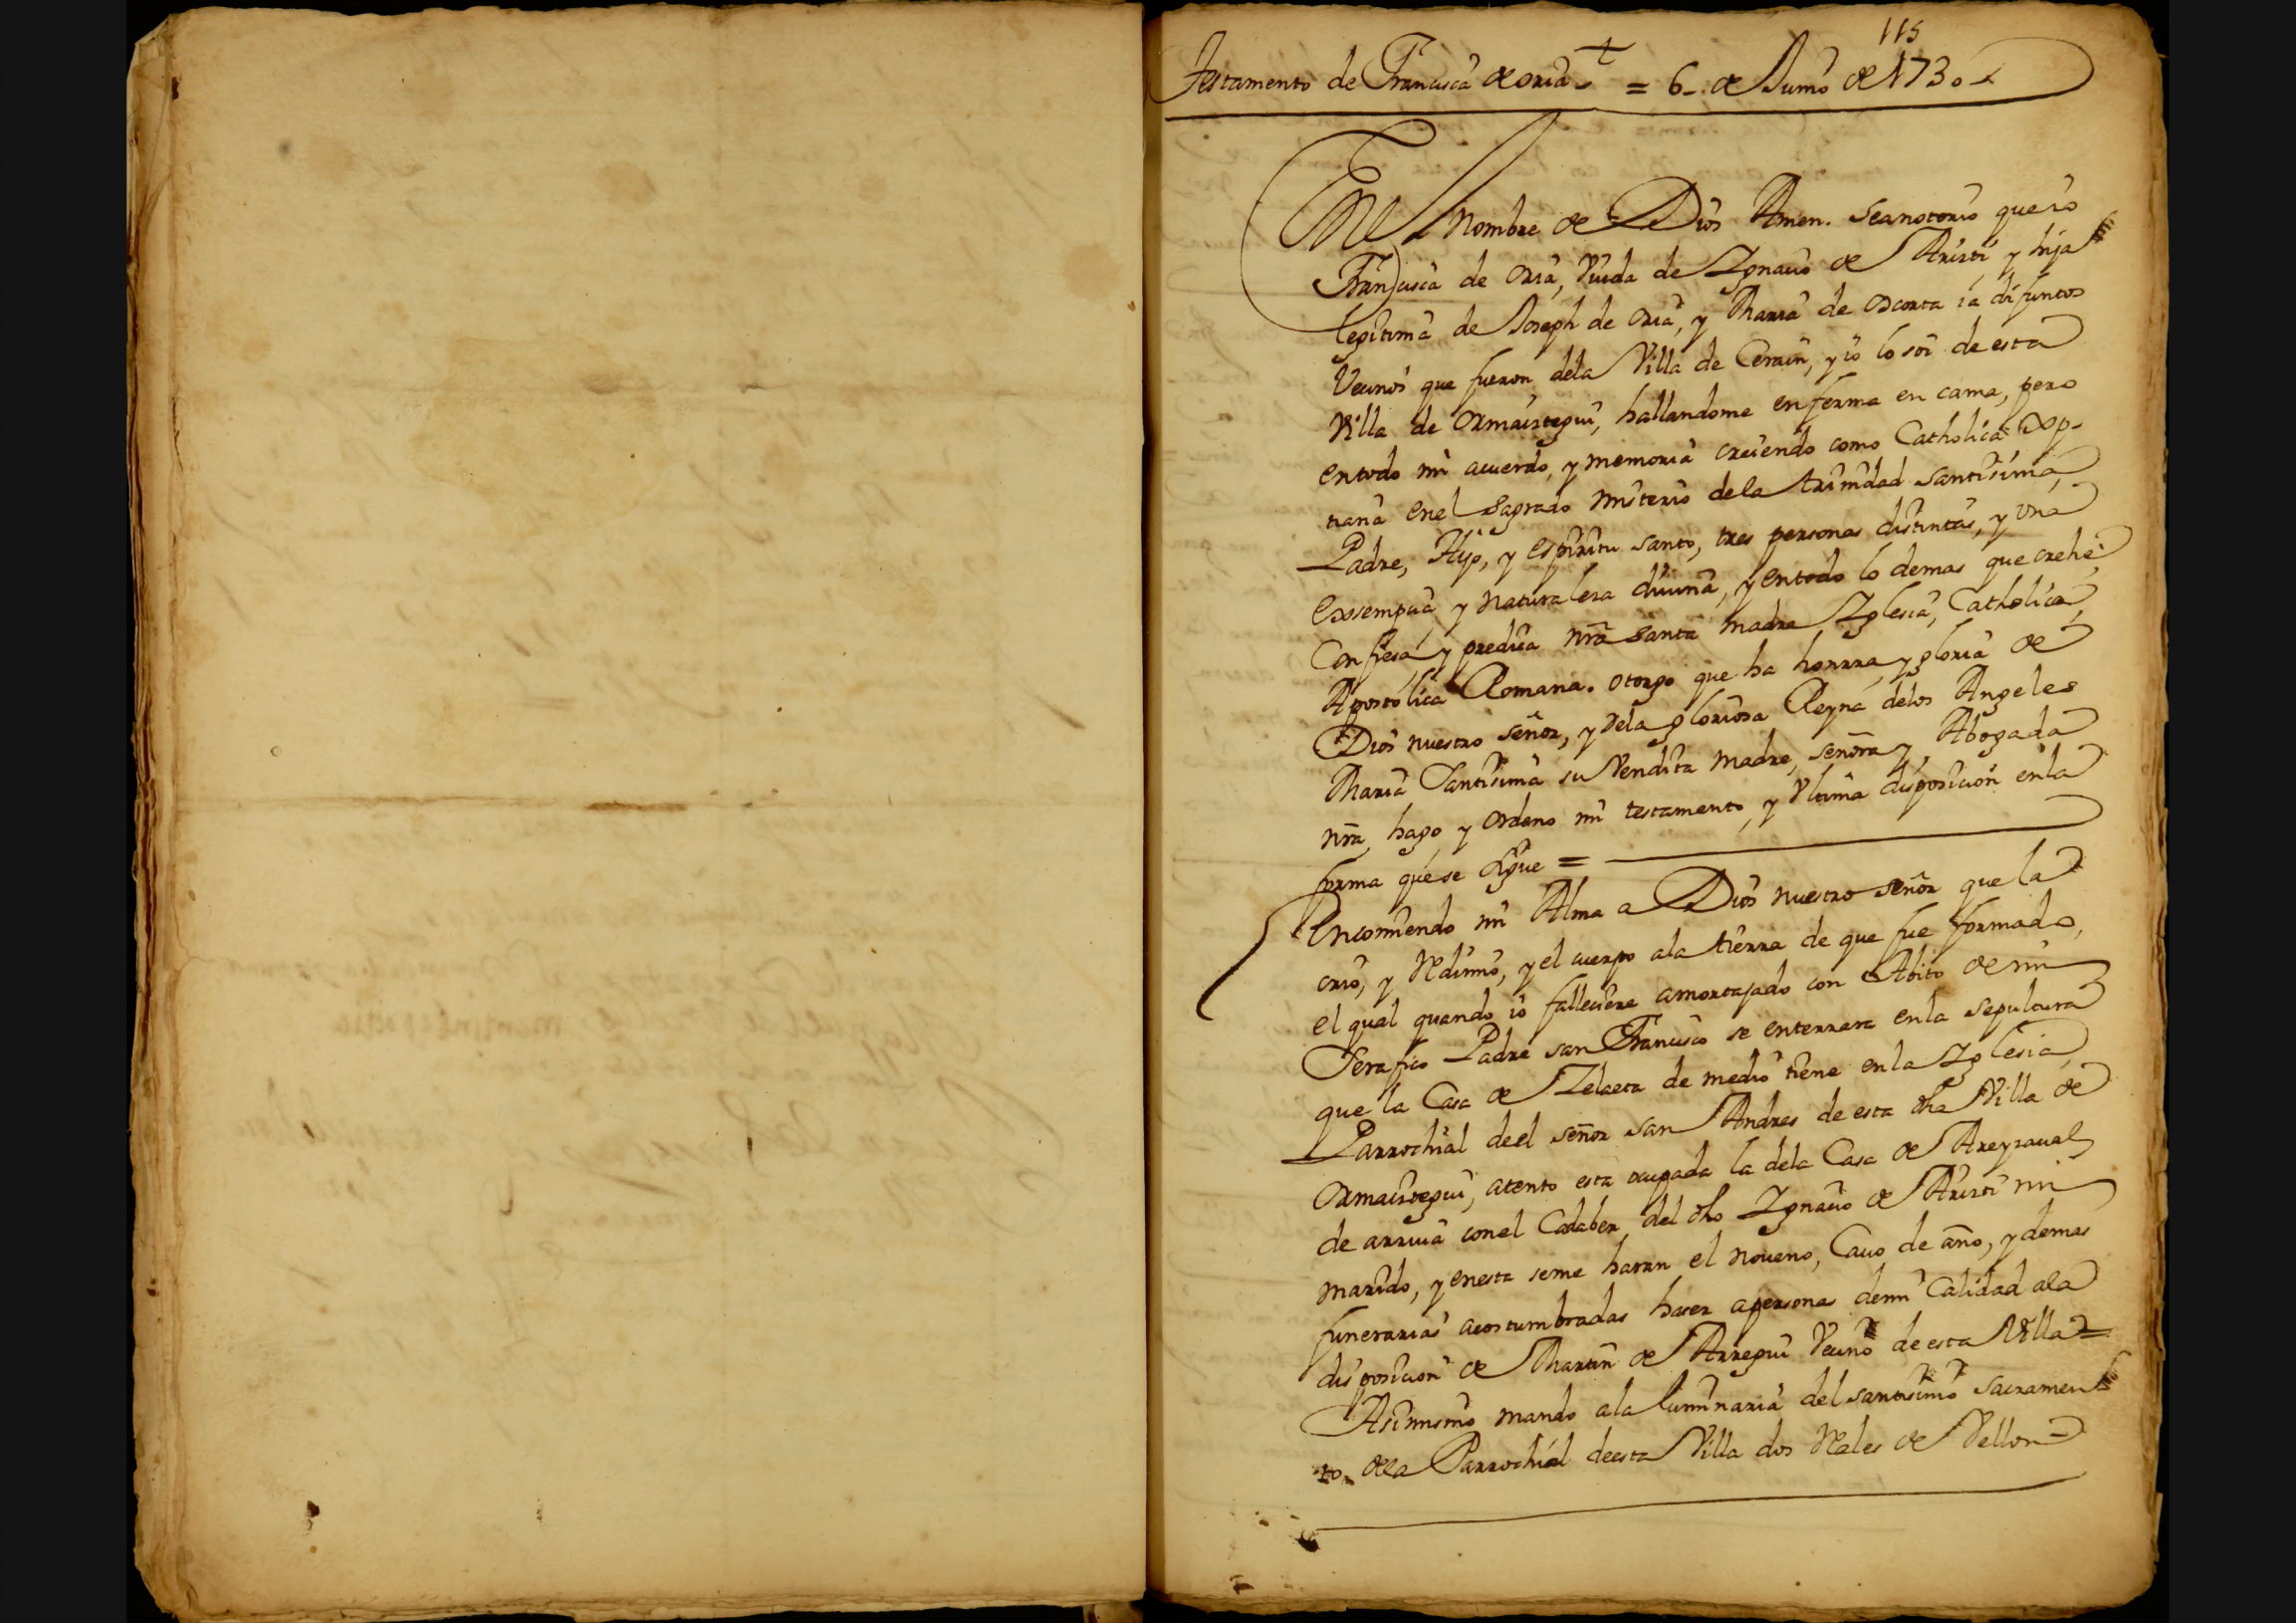 115
Testamento de Francisca de oria = 6. de Junio de 1730
EN el Nombre de Dios Amen. Seanotorio que io
Francisca de Oria, Viuda de Ygnacio de Aristi y hija
legitima de Joseph de Oria, y Maria de Oscorta ia difuntos
Vecinos que fueron dela Villa de Cerain, y io lo soi de esta
Villa de Ormaiztegui, hallandome enferma en cama, pero
entodo mi acuerdo, y memoria creiendo como Catholica Xp-
tiana enel Sagrado misterio dela trinidad santisima,
Padre, Hijo, y espiritu santo, tres personas distintas, y vna
Essempcia y naturalesa diuina, y entodo lo demas que crehe
Confiesa y predica nrã santa madre Yglesia, Catholica,
Apostolica Romana. otorgo que ha honrra, y gloria de
Dios nuestro señor, y dela gloriosa Reyna delos Angeles
Maria Santisima su Vendita madre, señora y Abogada
nrã, hago y ordeno mi testamento, y Vltima disposicion enla
forma que se sigue =
Encomiendo mi Alma a Dios nuestro señor que la
crio, y Redimio, y el cuerpo ala tierra de que fue formado,
el qual quando io falleciere amortajado con Abito de mi
Serafico Padre san Francisco se enterrara enla sepultura
que la Casa de Zelaeta de medio tiene enla Yglesia
Parrochial deel señor san Andres de esta dha Villa de
Ormaiztegui, atento esta ocupada la dela Casa de Areyzaual
de arriua conel Cadaber del dho Ygnacio de Aristi mi
marido, y enesta seme haran el noueno, Cauo de año, y demas
funerarias acostumbradas hacer apersonas demi Calidad ala
disposicion de Martin de Arregui Vecino de esta Villa =
Asimismo mando ala luminaria del santisimo sacramen
to. dela Parrochial deesta Villa dos Reales de Vellon